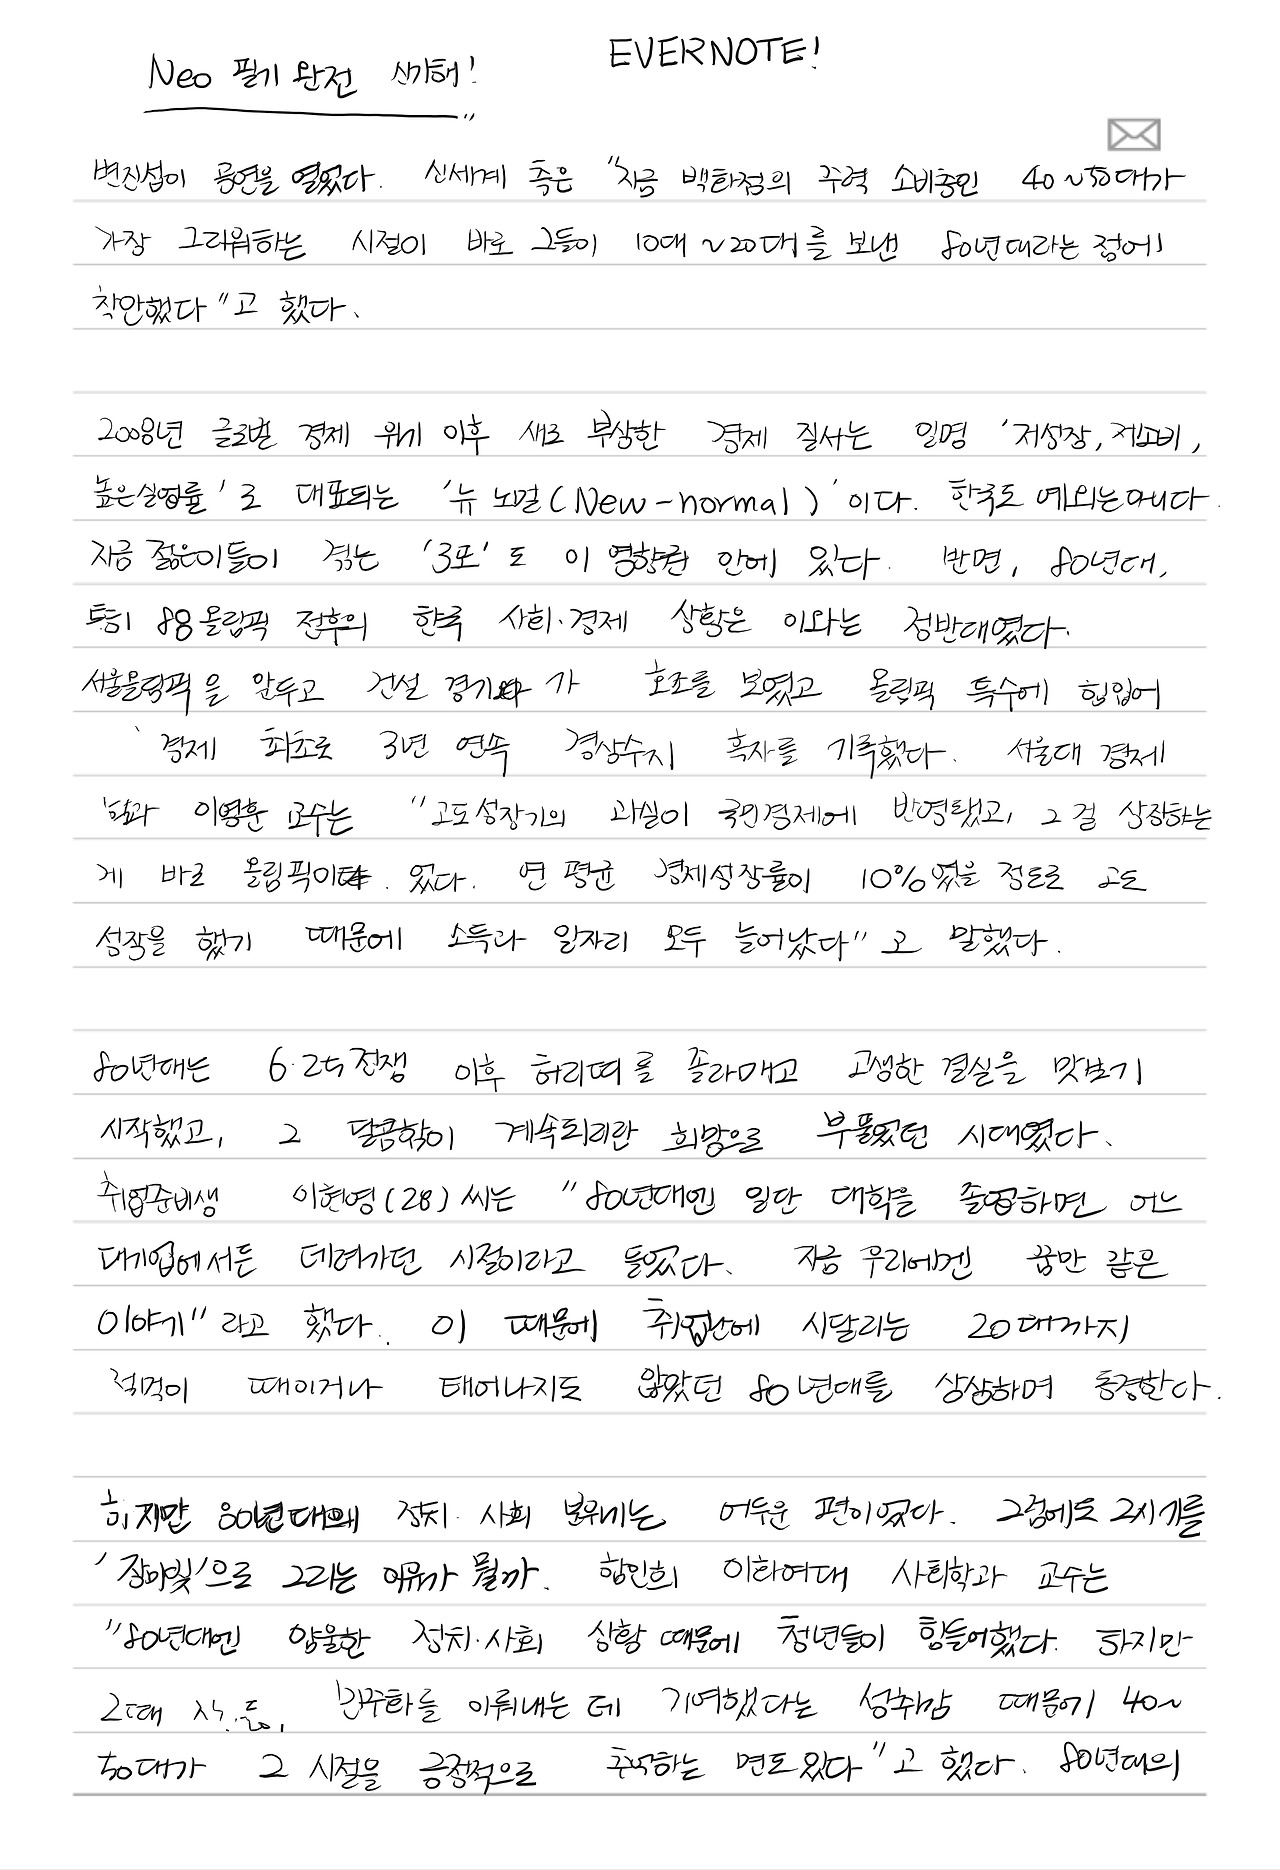 EVERNOTE!
Neo 필기 완전 신기해!
변진섭이 공연을 열었다. 신세계 측은 "지금 백화점의 주력 소비층인 40~50대가
가장 그리워하는 시절이 바로 그들이 10대~20대를 보낸 80년대라는 점에
착안했다"고 했다.
2008년 글로벌 경제 위기 이후 새로 부상한 경제 질서는 일명 '저성장, 저소비,
높은실업률'로 대표되는 '뉴 노멀(New-normal)'이다. 한국도 예외는아니다.
지금 젊은이들이 겪는 '3포'도 이 영향권 안에 있다. 반면, 80년대,
특히 88올림픽 전후의 한국 사회·경제 상황은 이와는 정반대였다.
서울올림픽을 앞두고 건설 경기 가 호조를 보였고 올림픽 특수에 힘입어
경제 최초로 3년 연속 경상수지 흑자를 기록했다. 서울대 경제
학과 이영훈 교수는 "고도성장기의 과실이 국민경제에 반영됐고, 그걸 상징하는
게 바로 올림픽이 었다. 연 평균 경제성장률이 10%였을 정도로 고도
성장을 했기 때문에 소득과 일자리 모두 늘어났다"고 말했다.
80년대는 6·25전쟁 이후 허리띠를 졸라매고 고생한 결실을 맛보기
시작했고, 그 달콤함이 계속되리란 희망으로 부풀었던 시대였다.
취업준비생 이현영(28)씨는 "80년대엔 일단 대학을 졸업하면 어느
대기업에서든 데려가던 시절이라고 들었다. 지금 우리에겐 꿈만 같은
이야기"라고 했다. 이 때문에 취업난에 시달리는 20대까지
젖먹이 때이거나 태어나지도 않았던 80년대를 상상하며 동경한다.
하지만 80년대의 정치·사회 분위기는 어두운 편이었다. 그럼에도 그시기를
'장미빛'으로 그리는 이유가 뭘까. 함인희 이화여대 사회학과 교수는
"80년대엔 암울한 정치·사회 상황 때문에 청년들이 힘들어했다. 하지만
그때 민주화를 이뤄내는 데 기여했다는 성취감 때문에 40~
50대가 그 시절을 긍정적으로 추억하는 면도있다"고 했다. 80년대의